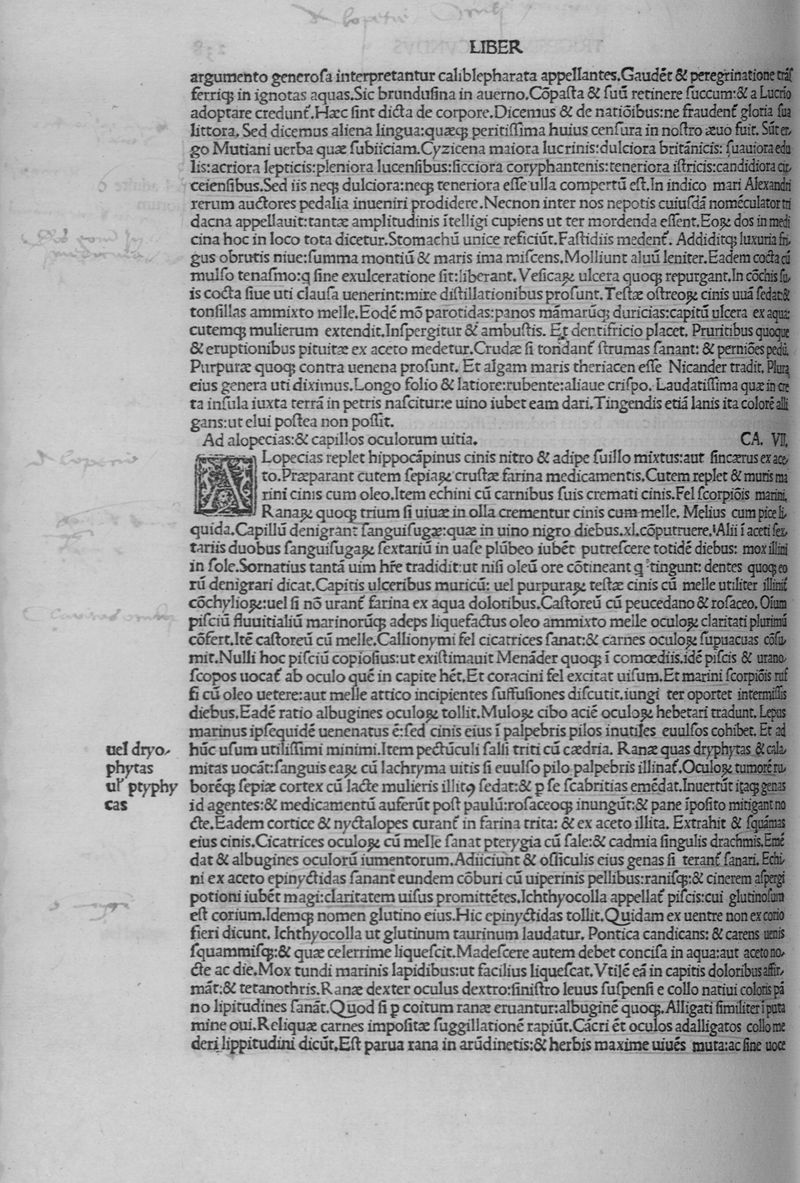 LIBER
argumento generosa interpretantur calliblepharata appellantes.Gaudēt & peregrinatione trāſ
ferriq; in ignotas aquas.Sic brunduſina in auerno.Cōpaſta & ſuū retinere ſuccum:& a Lucrio
adoptare credunt᷑.Hæc ſint dicta de corpore.Dicemus & de natiōibus:ne fraudent᷑ gloria ſua
littora. Sed dicemus aliena lingua:quæq; peritiſſima huius cenſura in noſtro æuo fuit. Sūt er-
go Mutiani uerba quæ ſubiiciam.Cyzicena maiora lucrinis:dulciora britānicis: ſuauiora edu
lis:acriora lepticis:pleniora lucenſibus:ſicciora coryphantenis:teneriora iſtricis:candidiora cir-
ceienſibus.Sed iis neq; dulciora:neq; teneriora eſſe ulla compertū eſt.In indico mari Alexandri
rerum auctores pedalia inueniri prodidere.Necnon inter nos nepotis cuiuſdā nomēculator tri
dacna appellauit:tantæ amplitudinis ītelligi cupiens ut ter mordenda eſſent.Eoꝝ dos in medi
cina hoc in loco tota dicetur.Stomachū unice reficiūt.Faſtidiis medent᷑. Addiditq; luxuria fri-
gus obrutis niue:ſumma montiū & maris ima miſcens.Molliunt aluū leniter.Eadem cocta cū
mulſo tenaſmo:q̄ ſine exulceratione ſit:liberant. Veſicaꝝ ulcera quoq; repurgant.In cōchis ſu-
is cocta ſiue uti clauſa uenerint:mire diſtillationibus proſunt. Teſtæ oſtreoꝝ cinis uuā ſedat:&
tonſillas ammixto melle.Eodē mō parotidas:panos māmarūq; duricias:capitū ulcera ex aqua:
cutemq; mulierum extendit.Inſpergitur & ambuſtis. Et dentifricio placet. Pruritibus quoque
& eruptionibus pituitæ ex aceto medetur.Crudæ ſi tondant᷑ ſtrumas ſanant: & perniōes pedū.
Purpuræ quoq; contra uenena proſunt. Et algam maris theriacen eſſe Nicander tradit. Plura
eius genera uti diximus.Longo folio & latiore:rubente:aliaue criſpo. Laudatiſſima quæ in cre
ta inſula iuxta terrā in petris naſcitur:e uino iubet eam dari.Tingendis etiā lanis ita colorē alli
gans:ut elui poſtea non poſſit.
Ad alopecias:& capillos oculorum uitia. CA. VII.
ALopecias replet hippocāpinus cinis nitro & adipe ſuillo mixtus:aut ſincærus ex ace-
to.Præparant cutem ſepiaꝝ cruſtæ farina medicamentis.Cutem replet & muris ma
rini cinis cum oleo.Item echini cū carnibus ſuis cremati cinis.Fel ſcorpiōis marini.
Ranaꝝ quoq; trium ſi uiuæ in olla crementur cinis cum melle. Melius cum pice li-
quida.Capillū denigrant ſanguiſugæ:quæ in uino nigro diebus.xl.cōputruere.Alii ī aceti ſex-
tariis duobus ſanguiſugaꝝ ſextariū in uaſe plūbeo iubēt putreſcere totidē diebus: mox illini
in ſole.Sornatius tantā uim hr̄e tradidit:ut niſi oleū ore cōtineant q̇ tingunt: dentes quoq; eo
rū denigrari dicat.Capitis ulceribus muricū: uel purpuraꝝ teſtæ cinis cū melle utiliter illinit᷑
cōchylioꝝ:uel ſi nō urant᷑ farina ex aqua doloribus.Caſtoreū cū peucedano & roſaceo. Oīum
piſciū fluuitialiū marinorūq; adeps liquefactus oleo ammixto melle oculoꝝ claritati plurimū
cōfert.Itē caſtoreū cū melle.Callionymi fel cicatrices ſanat:& carnes oculoꝝ ſupuacuas cōſu-
mit.Nulli hoc piſciū copioſius:ut exiſtimauit Menāder quoq; ī comœdiis.idē piſcis & urano-
ſcopos uocat᷑ ab oculo quē in capite hēt.Et coracini fel excitat uiſum.Et marini ſcorpiōis ruf
fi cū oleo uetere:aut melle attico incipientes ſuffuſiones diſcutit.iungi ter oportet intermiſſis
diebus.Eadē ratio albugines oculoꝝ tollit.Muloꝝ cibo aciē oculoꝝ hebetari tradunt. Lepus
marinus ipſequidē uenenatus ē:ſed cinis eius ī palpebris pilos inutiles euulſos cohibet. Et ad
hūc uſum utiliſſimi minimi.Item pectūculi ſalſi triti cū cædria. Ranæ quas dryphytas & cala-
mitas uocāt:ſanguis eaꝝ cū lachryma uitis ſi euulſo pilo palpebris illinat᷑.Oculoꝝ tumorē ru-
borēq; ſepiæ cortex cū lacte mulieris illitꝰ ſedat:& p ſe ſcabritias emēdat.Inuertūt itaq; genas
id agentes:& medicamentū auferūt poſt paulū:roſaceoq; inungūt:& pane īpoſito mitigant no
cte.Eadem cortice & nyctalopes curant᷑ in farina trita: & ex aceto illita. Extrahit & ſquāmas
eius cinis.Cicatrices oculoꝝ cū melle ſanat pterygia cū ſale:& cadmia ſingulis drachmis.Emē
dat & albugines oculorū iumentorum.Adiiciunt & oſſiculis eius genas ſi terant᷑ ſanari. Echi-
ni ex aceto epinyctidas ſanant eundem cōburi cū uiperinis pellibus:raniſq;:& cinerem aſpergi
potioni iubēt magi:claritatem uiſus promittētes.Ichthyocolla appellat᷑ piſcis:cui glutinoſum
eſt corium.Idemq; nomen glutino eius.Hic epinyctidas tollit.Quidam ex uentre non ex corio
fieri dicunt. Ichthyocolla ut glutinum taurinum laudatur. Pontica candicans: & carens uenis
ſquammiſq;:& quæ celerrime liqueſcit.Madeſcere autem debet conciſa in aqua:aut aceto no-
cte ac die.Mox tundi marinis lapidibus:ut facilius liqueſcat.Vtilē eā in capitis doloribus affir-
māt:& tetanothris.Ranæ dexter oculus dextro:ſiniſtro leuus ſuſpenſi e collo natiui coloris pā
no lipitudines ſanāt.Quod ſi p coitum ranæ eruantur:albuginē quoq;.Alligati ſimiliter ī puta
mine oui.Reliquæ carnes impoſitæ ſuggillationē rapiūt.Cācri ēt oculos adalligatos collo me
deri lippitudini dicūt.Eſt parua rana in arūdinetis:& herbis maxime uiuēs muta:ac ſine uoce
uel dryo-
phytas
ul' ptyphy
cas